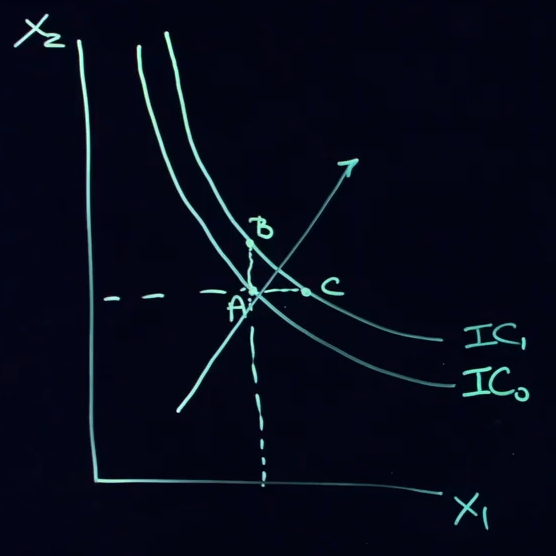 X₂
B
A
C
IC₁
IC₀
X₁